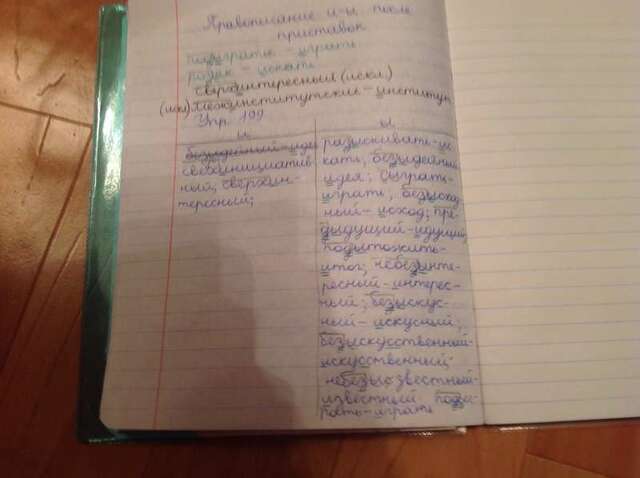 Правописание и-ы после
приставок
подыграть - играть
розыск - искать
сверхинтересный (искл.)
(искл) межинститутский - институт
Упр. 199
и
ы
безыдейный - идея
сверхинициатив-
ный; сверхин-
тересный;
разыскивать - ис-
кать, безыдейный
идея; сыграть -
играть, безысход-
ный - исход; пре-
дыдущий - идущий;
подытожить -
итог; небезынте-
ресный - интерес-
ный; безыскус-
ный - искусный;
безыскусственный -
искусственный;
небезызвестный -
известный
играть